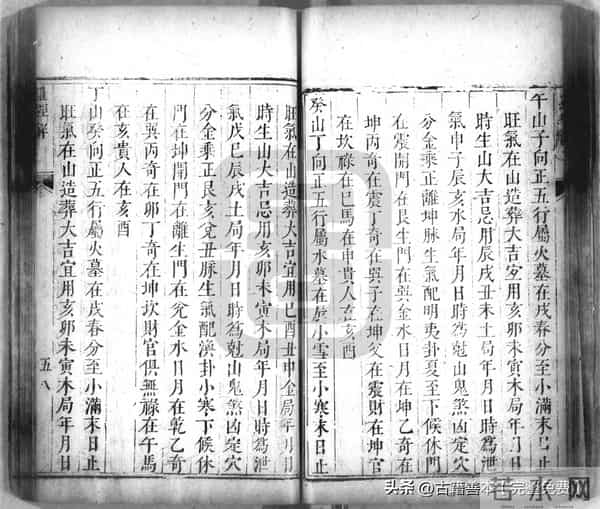 午山子向正五行屬火墓在戌春分至小滿末日止
旺氣在山造葬大吉宜用亥卯未寅木局年月日
時生山大吉忌用辰戌丑未土局年月日時爲泄
氣申子辰亥水局年月日時爲尅山鬼煞凶定穴
分金乘正離坤脉生氣配明夷卦夏至下候休門
在震開門在艮生門在巽金水日月在坤乙奇在
坤丙奇在震丁奇在巽子在坤癸在震財在坤官
在坎祿在巳馬在申貴人在亥酉
癸山丁向正五行屬水墓在辰小雪至小寒末日止
旺氣在山造葬大吉宜用巳酉丑申金局年月日
時生山大吉忌用亥卯未寅木局年月日時爲泄
氣戊巳辰戌土局年月日時爲尅山鬼煞凶定穴
分金乘正艮亥癸丑脉生氣配渙卦小寒下候休
門在坤開門在離生門在兌金水日月在乾乙奇
在巽丙奇在卯丁奇在坤坎財官俱無祿在午馬
在亥貴人在亥酉
丁山癸向正五行屬火墓在戌春分至小滿末日止
旺氣在山造葬大吉宜用亥卯未寅木局年月日
羅經解
五八
头条 @古籍善本卡完整免费